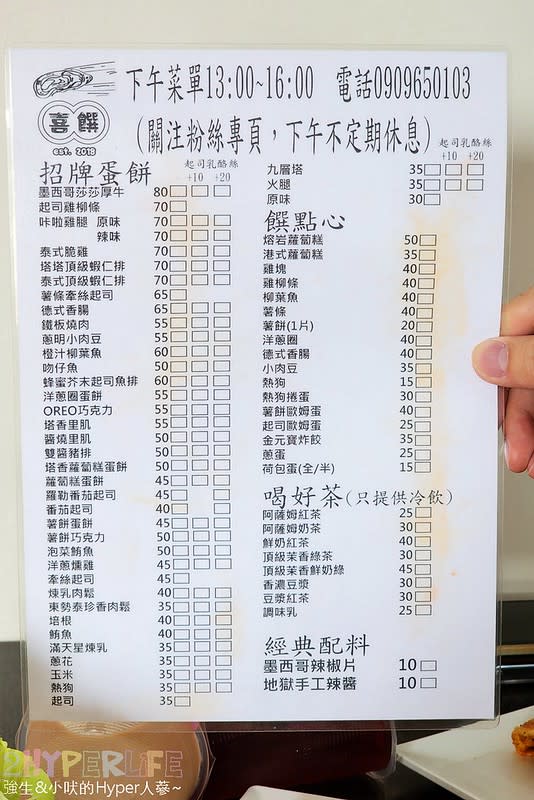 下午菜單13:00~16:00 電話0909650103
喜饌
est. 2018
(關注粉絲專頁，下午不定期休息)
招牌蛋餅
起司 乳酪絲
+10 +20
墨西哥莎莎厚牛 80
起司雞柳條 70
咔啦雞腿 原味 70
辣味 70
泰式脆雞 70
塔塔頂級蝦仁排 70
泰式頂級蝦仁排 70
薯條牽絲起司 65
德式香腸 65
鐵板燒肉 55
蔥明小肉豆 55
橙汁柳葉魚 60
吻仔魚 50
蜂蜜芥末起司魚排 60
洋蔥圈蛋餅 55
OREO巧克力 55
塔香里肌 55
醬燒里肌 50
雙醬豬排 50
塔香蘿蔔糕蛋餅 50
蘿蔔糕蛋餅 45
羅勒番茄起司 45
番茄起司 40
薯餅蛋餅 45
薯餅巧克力 50
泡菜鮪魚 50
洋蔥燻雞 45
牽絲起司 45
煉乳肉鬆 40
東勢泰珍香肉鬆 35
培根 40
鮪魚 40
滿天星煉乳 35
蔥花 35
玉米 35
熱狗 35
起司 35
起司 乳酪絲
+10 +20
九層塔 35
火腿 35
原味 30
饌點心
熔岩蘿蔔糕 50
港式蘿蔔糕 35
雞塊 40
雞柳條 40
柳葉魚 40
薯條 40
薯餅(1片) 20
洋蔥圈 40
德式香腸 40
小肉豆 35
熱狗 15
熱狗捲蛋 30
薯餅歐姆蛋 40
起司歐姆蛋 25
金元寶炸餃 35
蔥蛋 20
荷包蛋(全/半) 15
喝好茶(只提供冷飲)
阿薩姆紅茶 25
阿薩姆奶茶 30
鮮奶紅茶 40
頂級茉香綠茶 30
頂級茉香鮮奶綠 45
香濃豆漿 30
豆漿紅茶 30
調味乳 25
經典配料
墨西哥辣椒片 10
地獄手工辣醬 10
2HYPERLIFE
強生&小吠的Hyper人蔘~